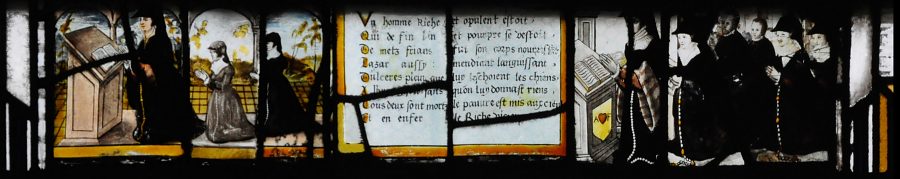 Un homme Riche et opulent estoit
Qui de fin lin et pourpre se vestoit
De metz frians fut son corps nourrissant
Lazar aussy mendicat languissant,
Dulceres plein que luy leschoient les chiens
sans qu'on luy donnast riens,
Tous deux sont mortz le pauvre est mis aux cieux
Et en enfer le Riche
A